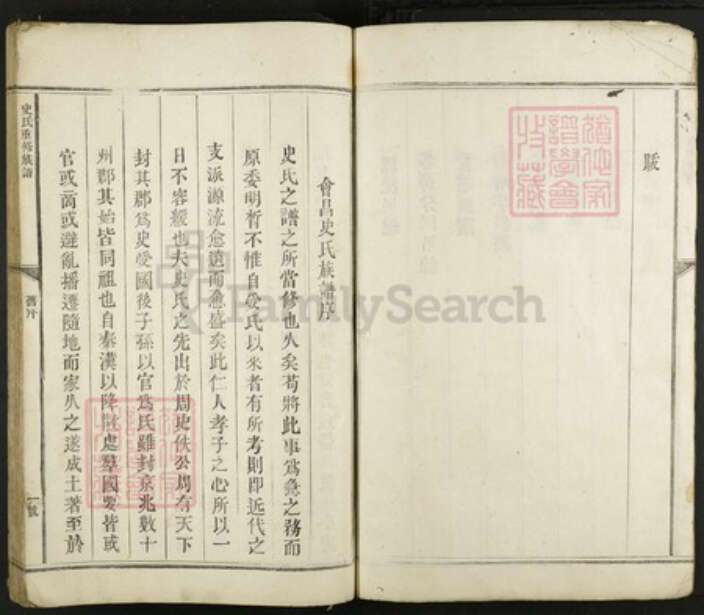 跋
會昌史氏族譜序
史氏之譜之所當修也久矣苟將此事爲急之務而
原委明晳不惟自受氏以來者有所考則卽近代之
支派源流愈遠而愈盛矣此仁人孝子之心所以一
日不容緩也夫史氏之先出於周史佚公周有天下
封其郡爲史受國後子孫以官爲氏雖封京兆數十
州郡其始皆同祖也自秦漢以降散處羣國要皆或
官或商或避亂播遷隨地而家久之遂成土著至於
史氏重修族譜
舊序
一號
FamilySearch